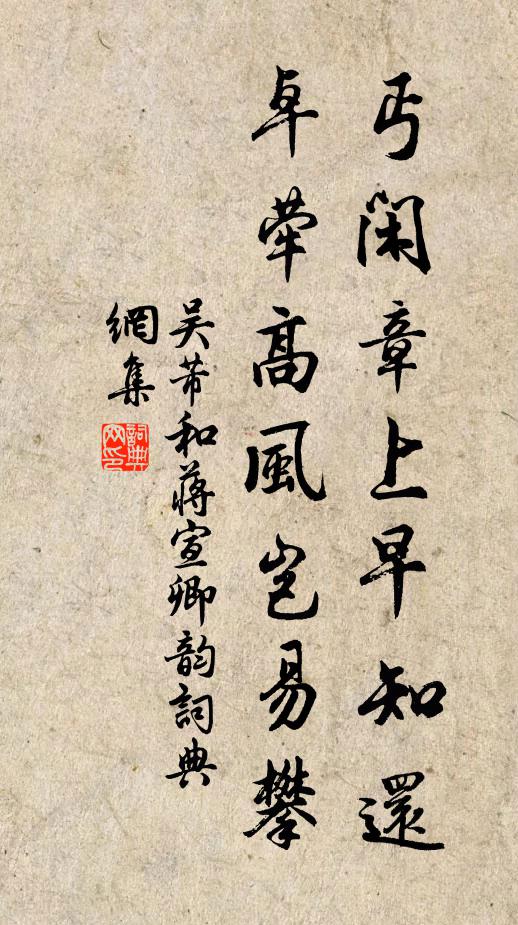 丐閑章上早知還
卓犖高風豈易攀
吴芾和蔣宣卿韵詞典
網集
詞典
网印